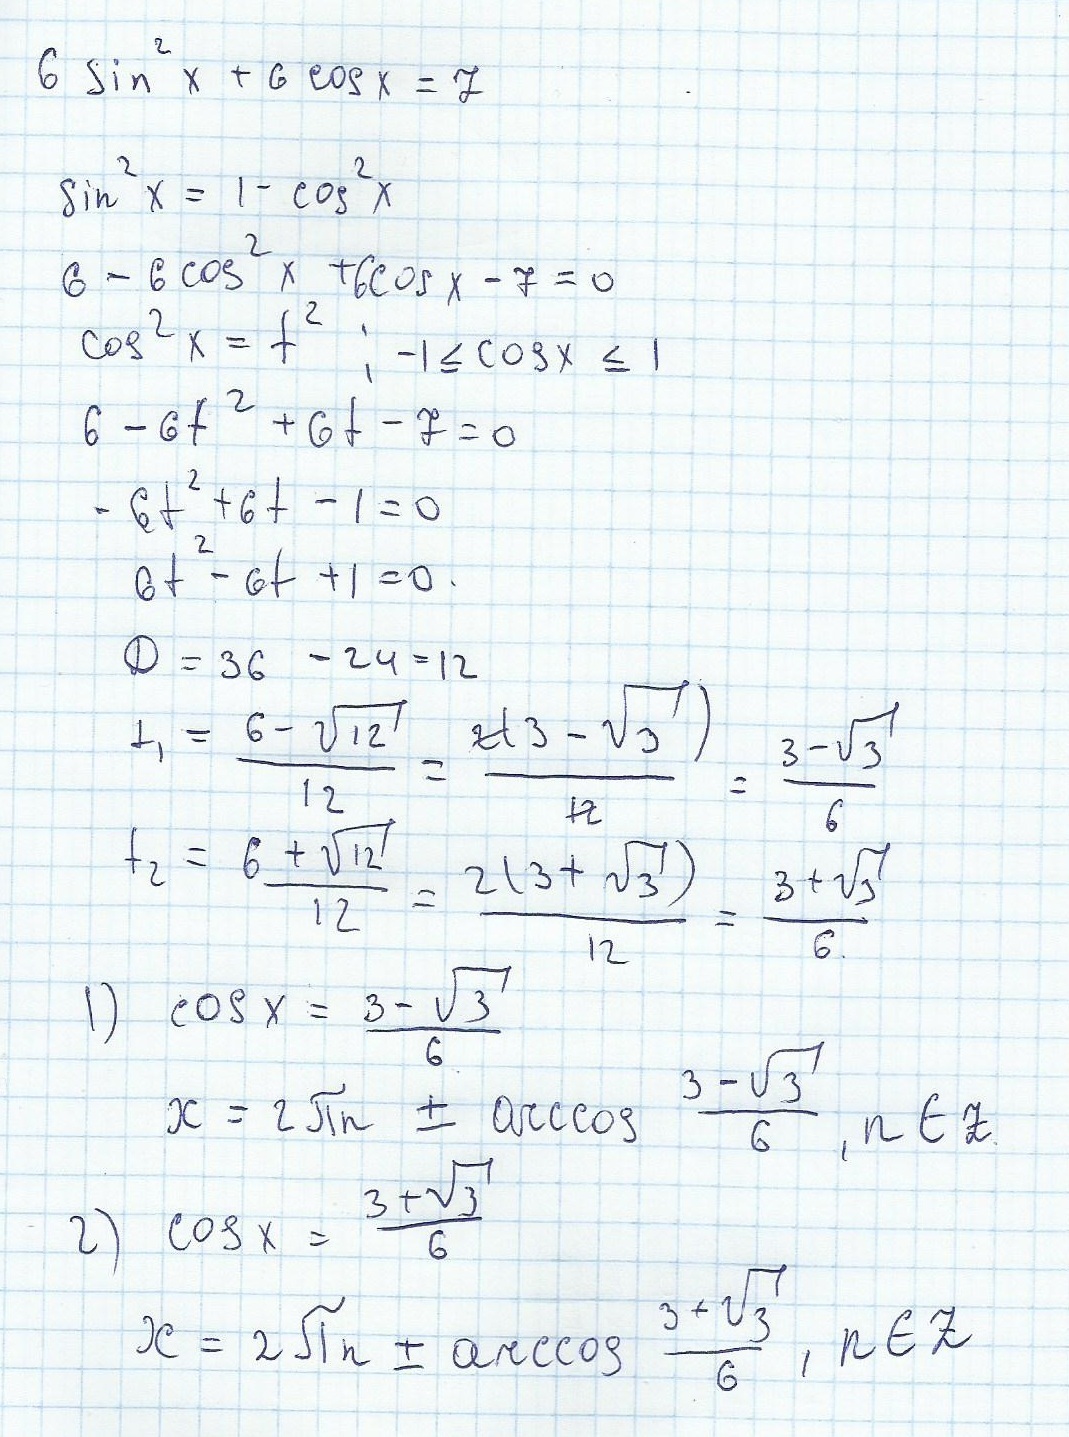 6 sin² x + 6 cos x = 7
sin² x = 1 - cos² x
6 - 6 cos² x + 6 cos x - 7 = 0
cos² x = t² ; -1 ≤ cos x ≤ 1
6 - 6t² + 6t - 7 = 0
- 6t² + 6t - 1 = 0
6t² - 6t + 1 = 0.
D = 36 - 24 = 12
t₁ = (6 - √12)/12 = 2(3 - √3)/12 = (3 - √3)/6
t₂ = (6 + √12)/12 = 2(3 + √3)/12 = (3 + √3)/6.
1) cos x = (3 - √3)/6
x = 2πn ± arccos (3 - √3)/6, n ∈ Z.
2) cos x = (3 + √3)/6
x = 2πn ± arccos (3 + √3)/6, n ∈ Z